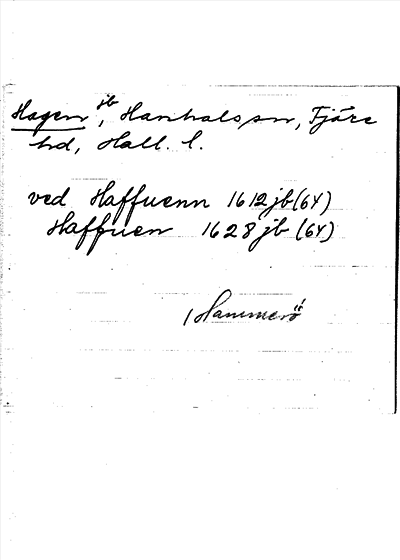 Hagen jb, Hanhals sn, Fjäre
hd, Hall. l.
ved Haffuenn 1612 jb (64)
Haffuen 1628 jb (64)
/ Hammerö